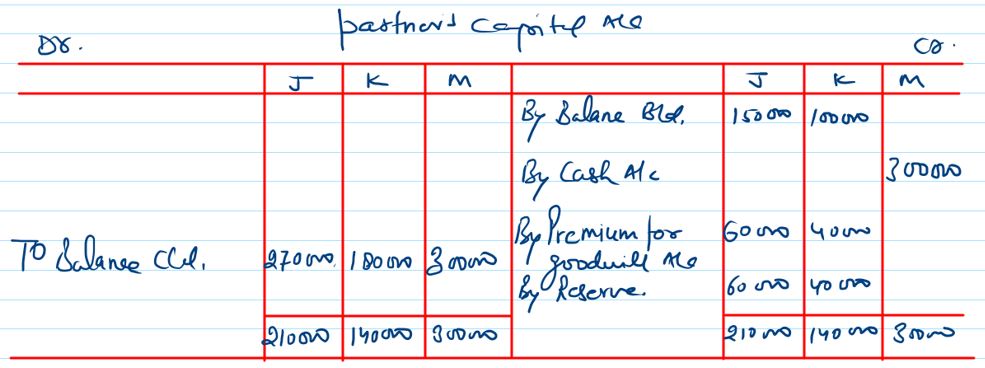 partner's capital A/c
Dr. Cr.
J K M J K M
By Balane Bld. 150000 100000
By Cash A/c 300000
By Premium for goodwill A/c 60000 40000
To Balance C/d. 270000 180000 300000
By Reserve. 60000 40000
210000 140000 300000 210000 140000 300000